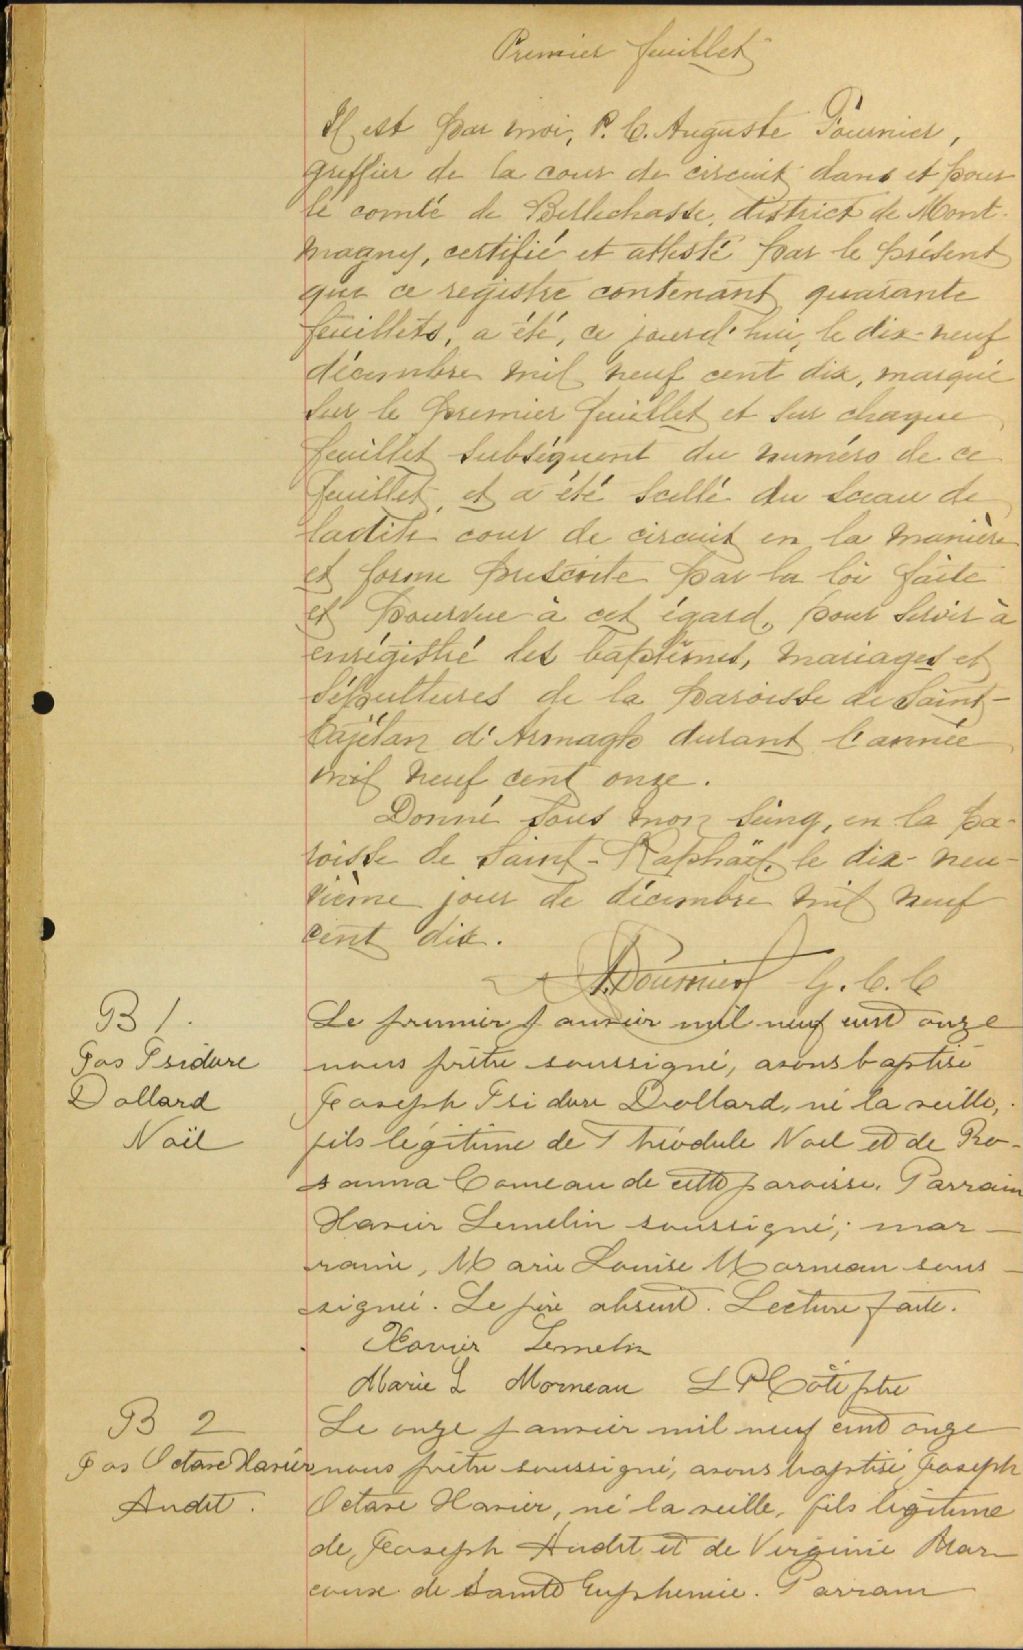 Premier feuillet
Il est par moi, P. C. Auguste Fournier,
greffier de la cour de circuit dans et pour
le comté de Bellechasse, district de Mont-
magny, certifié et attesté par le présent
que ce registre contenant quarante
feuillets, a été, ce jourd'hui, le dix-neuf
décembre mil neuf cent dix, marqué
sur le premier feuillet et sur chaque
feuillet subséquent du numéro de ce
feuillet et a été scellé du sceau de
ladite cour de circuit en la manière
et forme prescrite par la loi faite
et pourvue à cet égard, pour servir à
enrégistré les baptêmes, mariages et
sépultures de la paroisse de Saint-
Cajétan d'Armagh durant l'année
mil neuf cent onze.
Donné sous mon seing, en la pa-
roisse de Saint-Raphaël, le dix-neu-
vième jour de décembre mil neuf
cent dix.
A. Fournier G. C. C
B 1.
Jos Isidore
Dollard
Noël
Le premier janvier mil neuf cent onze
nous prêtre soussigné, avons baptisé
Joseph Isidore Dollard, né la veille,
fils légitime de Théodule Noel et de Ro-
sanna Comeau de cette paroisse. Parrain
Xavier Lemelin soussigné; mar-
raine, Marie Louise Morneau sous-
signée. Le père absent. Lecture faite.
Xavier Lemelin
Marie L Morneau L P Côté ptre
B 2
Jos Octave Xavier
Audet.
Le onze janvier mil neuf cent onze
nous prêtre soussigné, avons baptisé Joseph
Octave Xavier, né la veille, fils légitime
de Joseph Audet et de Virginie Mar-
coux de Sainte Euphemie. Parrain